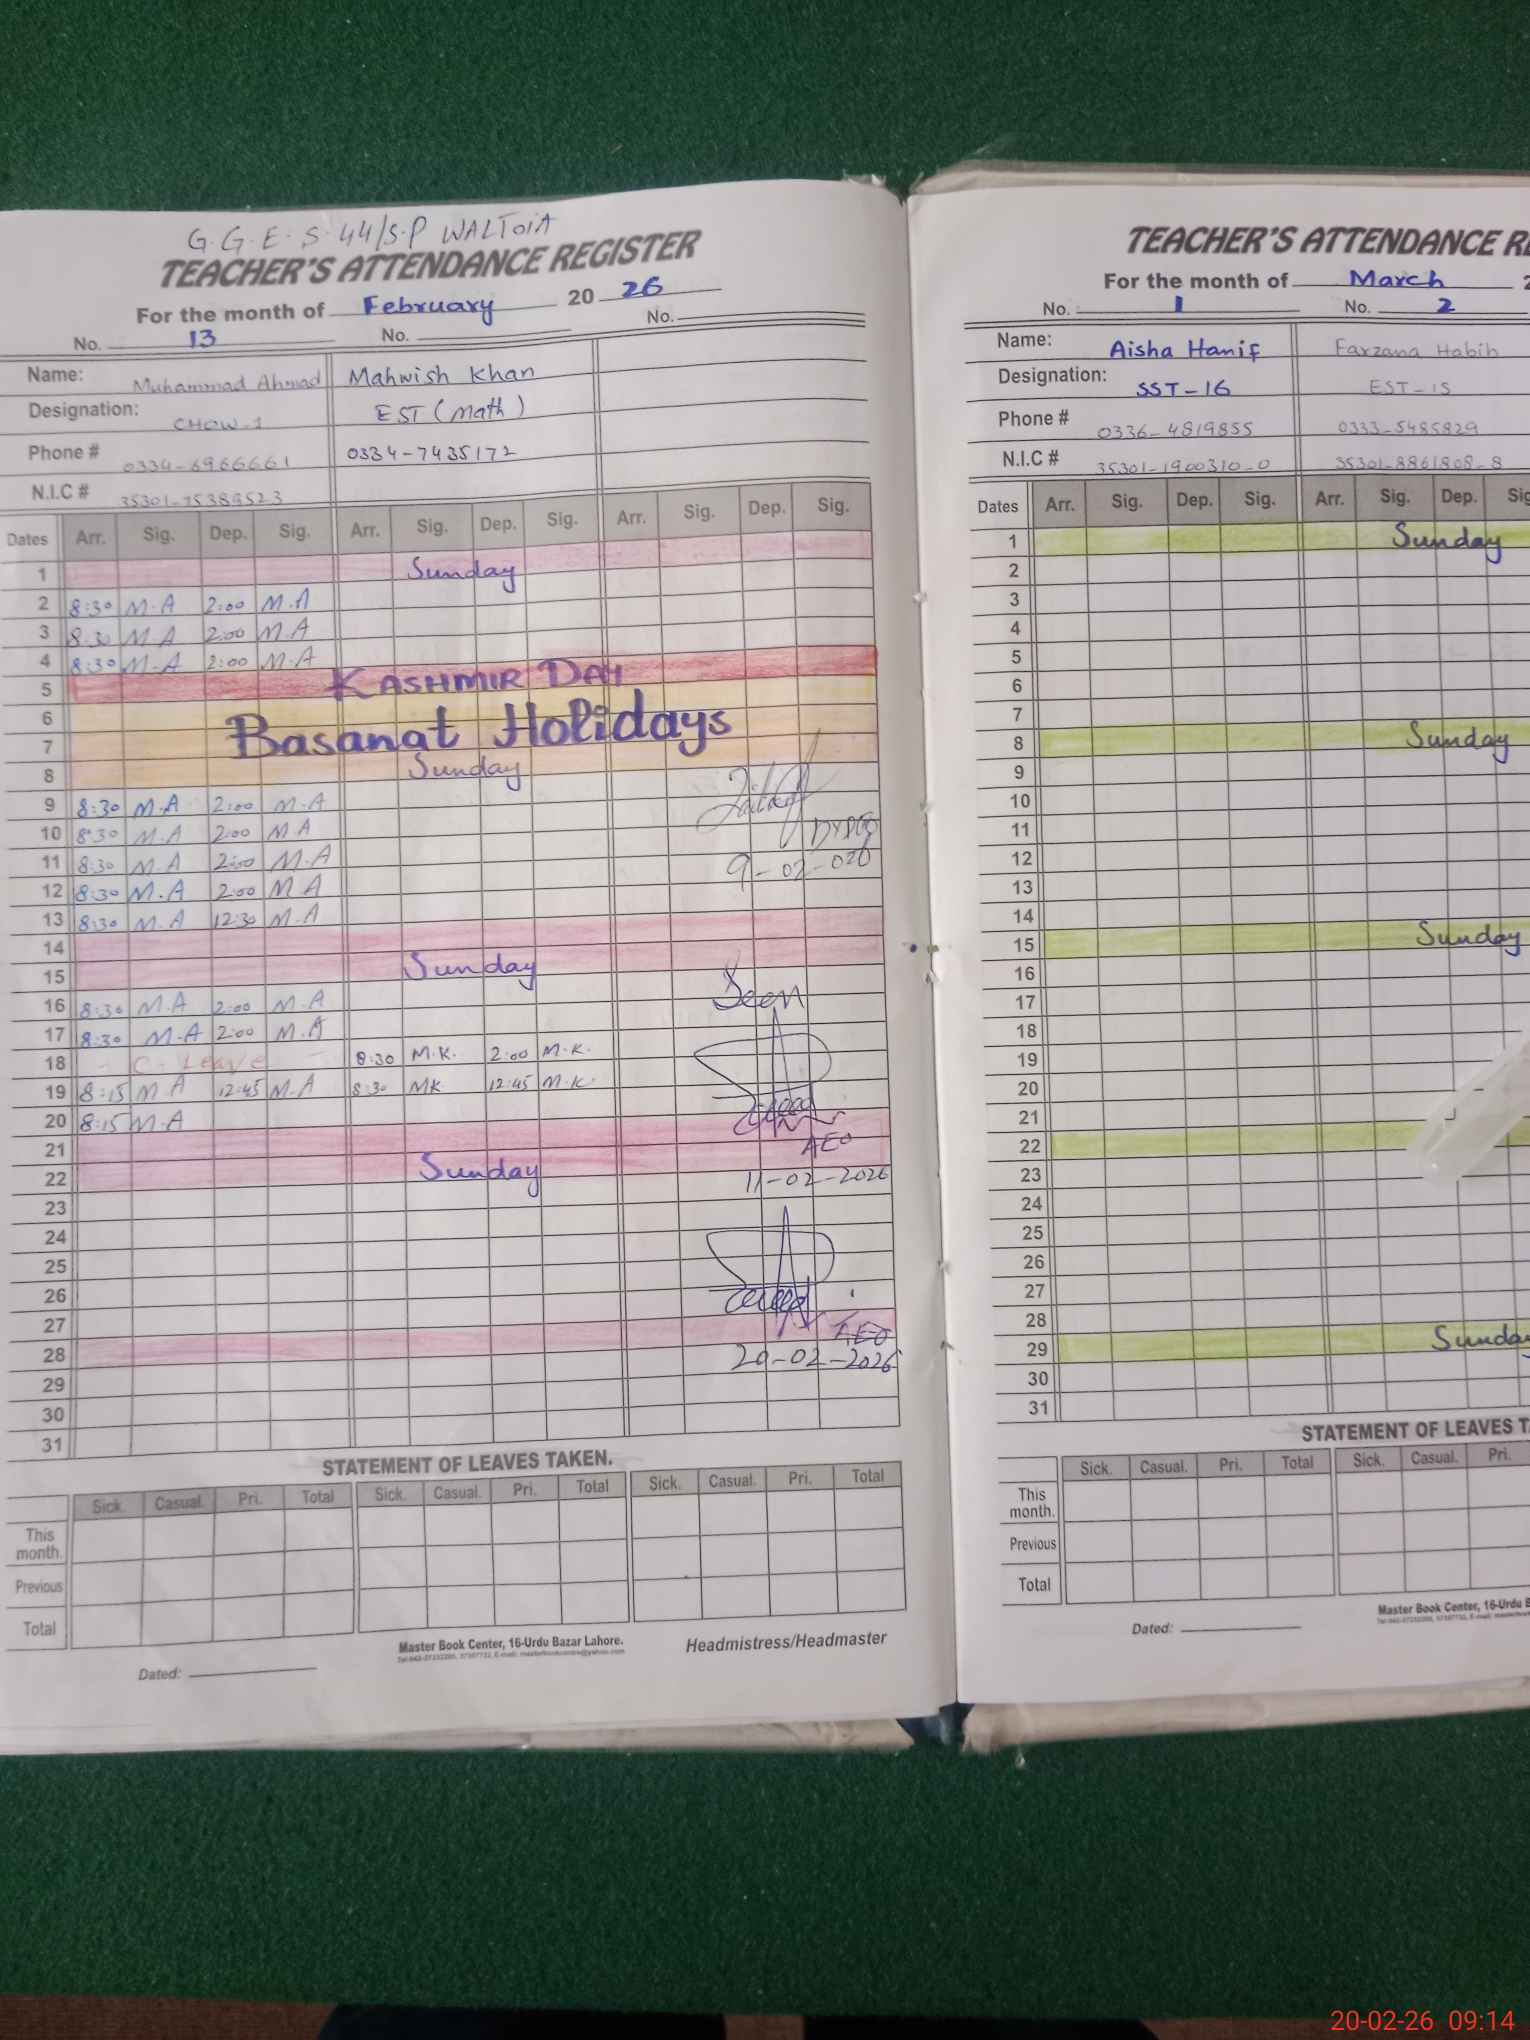 G.G.E.S 44/S.P WALTOIA
TEACHER'S ATTENDANCE REGISTER
For the month of February 20 26
No. 13 No. No.
Name: Muhammad Ahmad Mahwish Khan
Designation: CHOW-1 EST (Math)
Phone # 0334-6966661 0334-7435172
N.I.C # 35301-75389523
Dates Arr. Sig. Dep. Sig. Arr. Sig. Dep. Sig. Arr. Sig. Dep. Sig.
1 Sunday
2 8:30 M.A 2:00 M.A
3 8:30 M A 2:00 M.A
4 8:30 M.A 2:00 M.A
5 KASHMIR DAY
6
7 Basanat Holidays
8 Sunday
9 8:30 M.A 2:00 M.A
10 8:30 M.A 2:00 M A
11 8:30 M.A 2:00 M.A
9-02-026
12 8:30 M.A 2:00 M A
13 8:30 M.A 12:30 M.A
14
15 Sunday
16 8:30 M.A 2:00 M.A Seen
17 8:30 M.A 2:00 M.A
18 - C-Leave - 8:30 M.K. 2:00 M.K.
19 8:15 M A 12:45 M.A 8:30 MK 12:45 M.K.
20 8:15 M.A
21 AEO
22 Sunday 11-02-2026
23
24
25
26
27 AEO
28 20-02-2026
29
30
31
STATEMENT OF LEAVES TAKEN.
Sick. Casual. Pri. Total Sick. Casual. Pri. Total Sick. Casual. Pri. Total
This month.
Previous
Total
Master Book Center, 16-Urdu Bazar Lahore.
Headmistress/Headmaster
Dated:
TEACHER'S ATTENDANCE RE
For the month of March 2
No. 1 No. 2
Name: Aisha Hanif Farzana Habib
Designation: SST-16 EST-15
Phone # 0336-4819855 0333-5485829
N.I.C # 35301-1900310-0 35301-8861808-8
Dates Arr. Sig. Dep. Sig. Arr. Sig. Dep. Sig
1 Sunday
2
3
4
5
6
7
8 Sunday
9
10
11
12
13
14
15 Sunday
16
17
18
19
20
21
22
23
24
25
26
27
28
29 Sunday
30
31
STATEMENT OF LEAVES T
Sick. Casual. Pri. Total Sick. Casual. Pri.
This month.
Previous
Total
Master Book Center, 16-Urdu B
Dated:
20-02-26 09:14